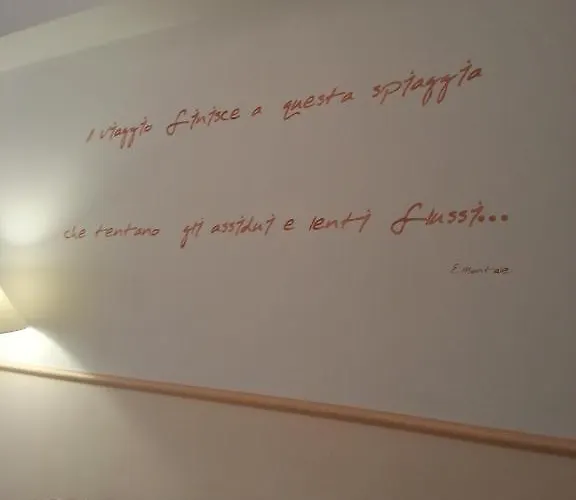 l viaggio finisce a questa spiaggia
che tentano gli assidui e lenti flussi...
E. Montale